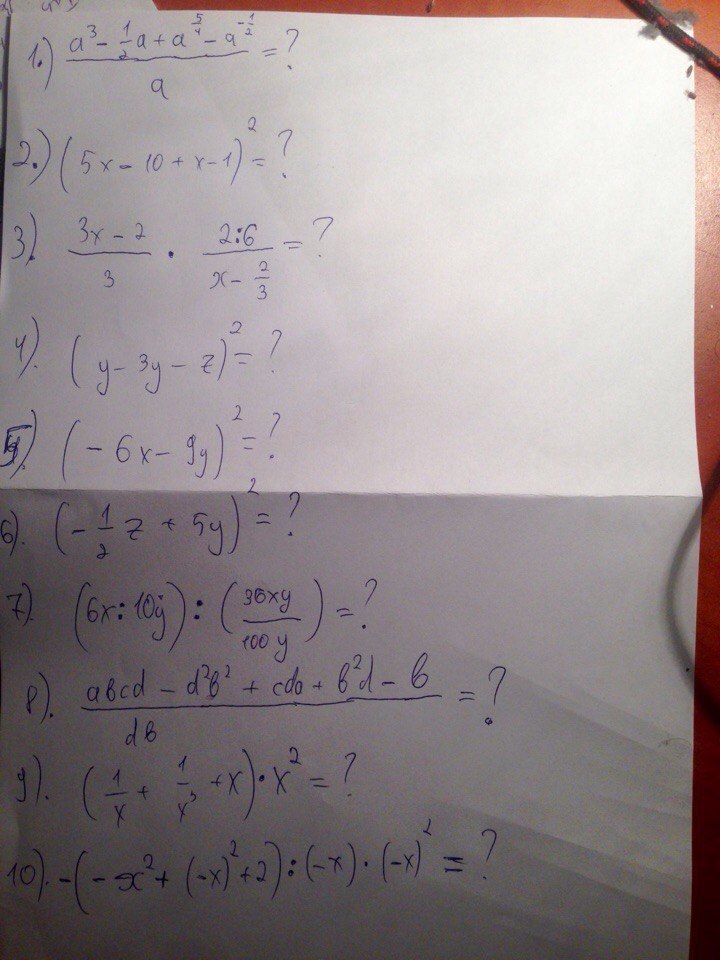 1.) (a³ - 1/2 a + a^(5/4) - a^(-1/2)) / a = ?
2.) (5x - 10 + x - 1)² = ?
3). (3x - 2)/3 · (2:6)/(x - 2/3) = ?
4). (y - 3y - z)² = ?
5). (-6x - 9y)² = ?
6). (-1/2 z + 5y)² = ?
7). (6x:10y) : (36xy/100y) = ?
8). (abcd - d²b² + cdb + b²d - b) / db = ?
9). (1/x + 1/x³ + x) · x² = ?
10). -(-x² + (-x)² + 2) : (-x) · (-x)² = ?